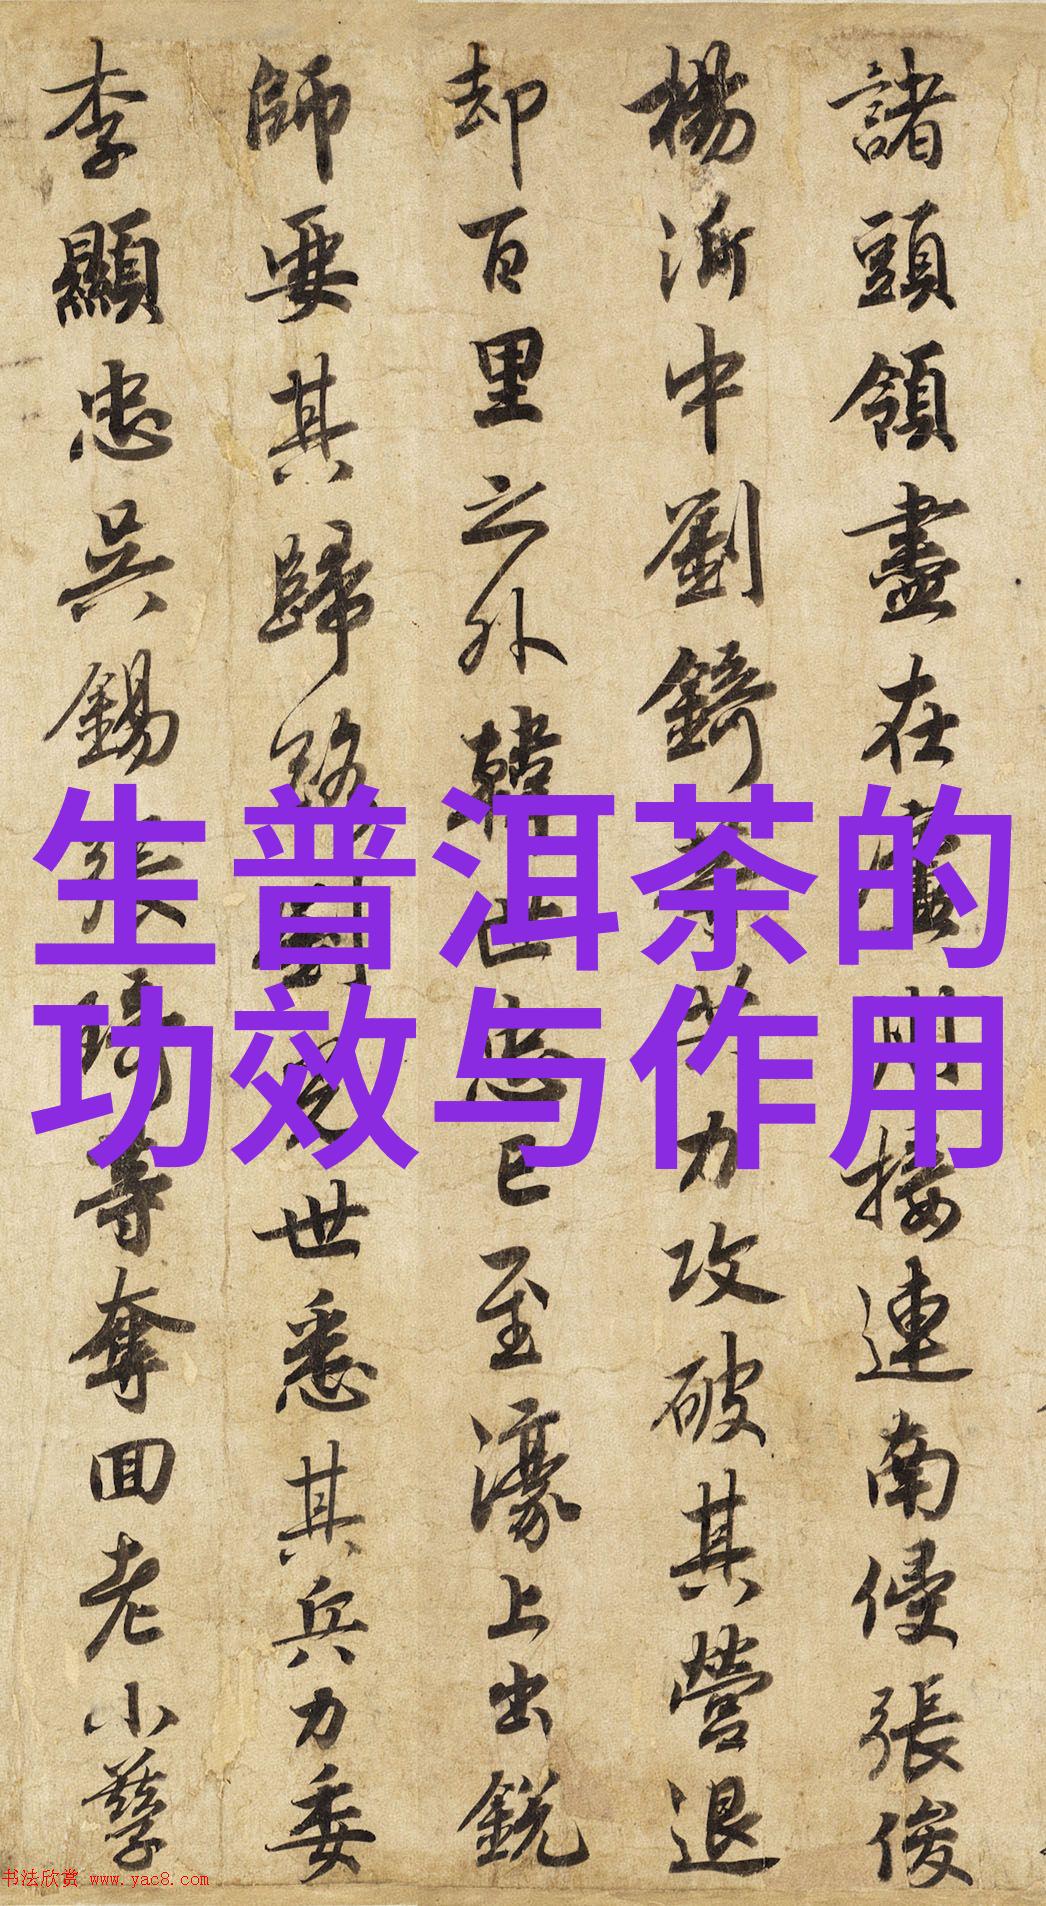 諸頭領盡在廬州接連南侵張俊
楊沂中劉錡等共力攻破其營退
却百里之外韓世忠已至濠上出銳
師要其歸路劉光世悉其兵力委
李顯忠吳錫張琦等奪回老小孳
生普洱茶的
功效与作用
书法欣赏 www.yac8.com